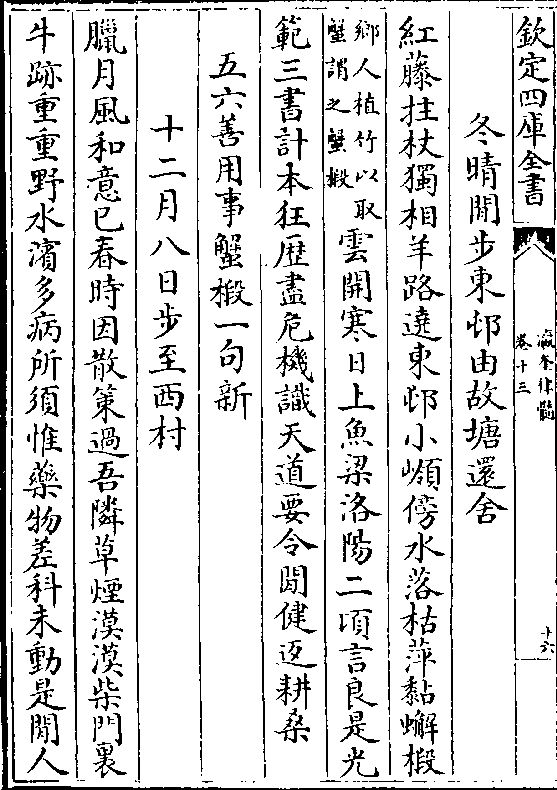 欽定四庫全書
瀛奎律髓
卷十三
十六
冬晴閒步東邨由故塘還舍
紅藤拄杖獨相羊路遶東邨小嶺傍水落枯萍黏蠏椴
鄉人植竹以取
蟹謂之蟹椴
雲開寒日上魚梁洛陽二頃言良是光
範三書計本狂歴盡危機識天道要令閒健返耕桑
五六善用事蟹椴一句新
十二月八日步至西村
臘月風和意已春時因散策過吾隣草煙漠漠柴門裏
牛跡重重野水濱多病所須惟藥物差科未動是閒人